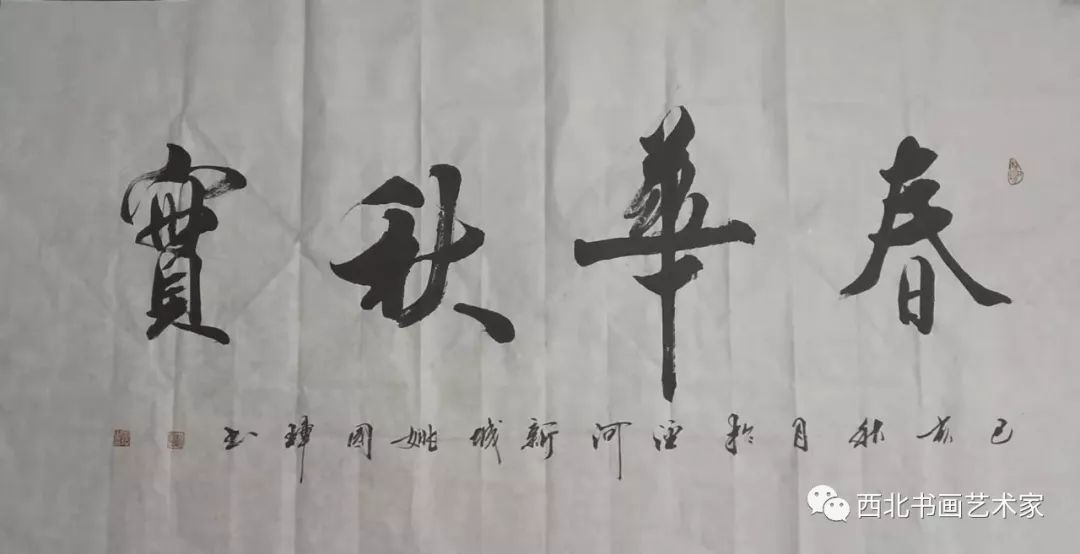 春華秋實
己亥秋月於泾河新城姚國瑋書
西北书画艺术家